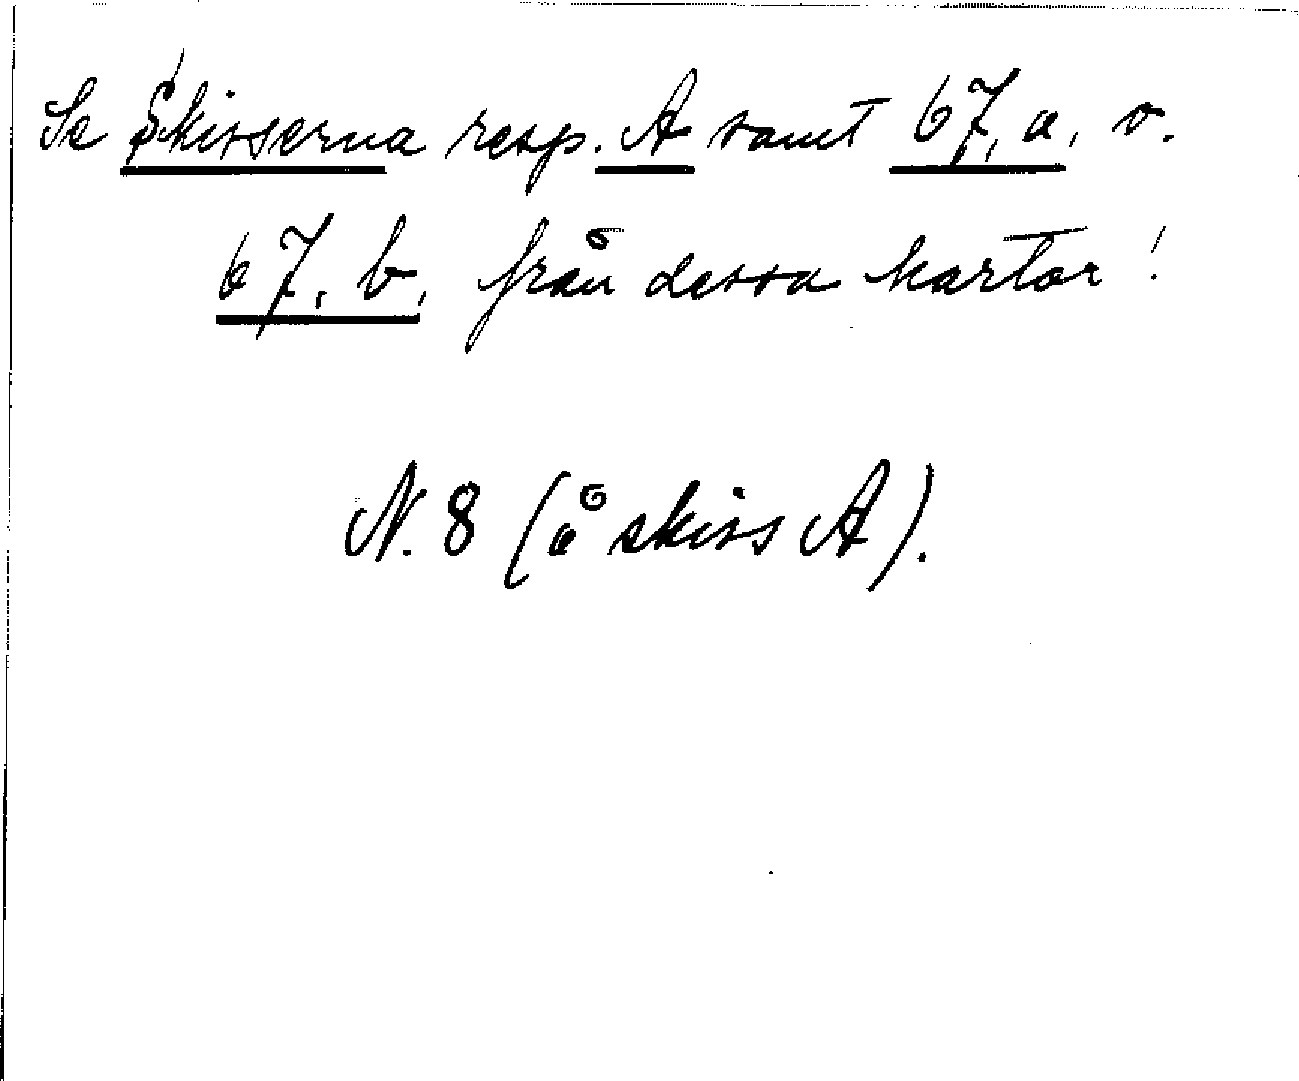 Se Skisserna resp. A samt 67, a, o.
67, b, från dessa kartor!
N. 8 (å skiss A).